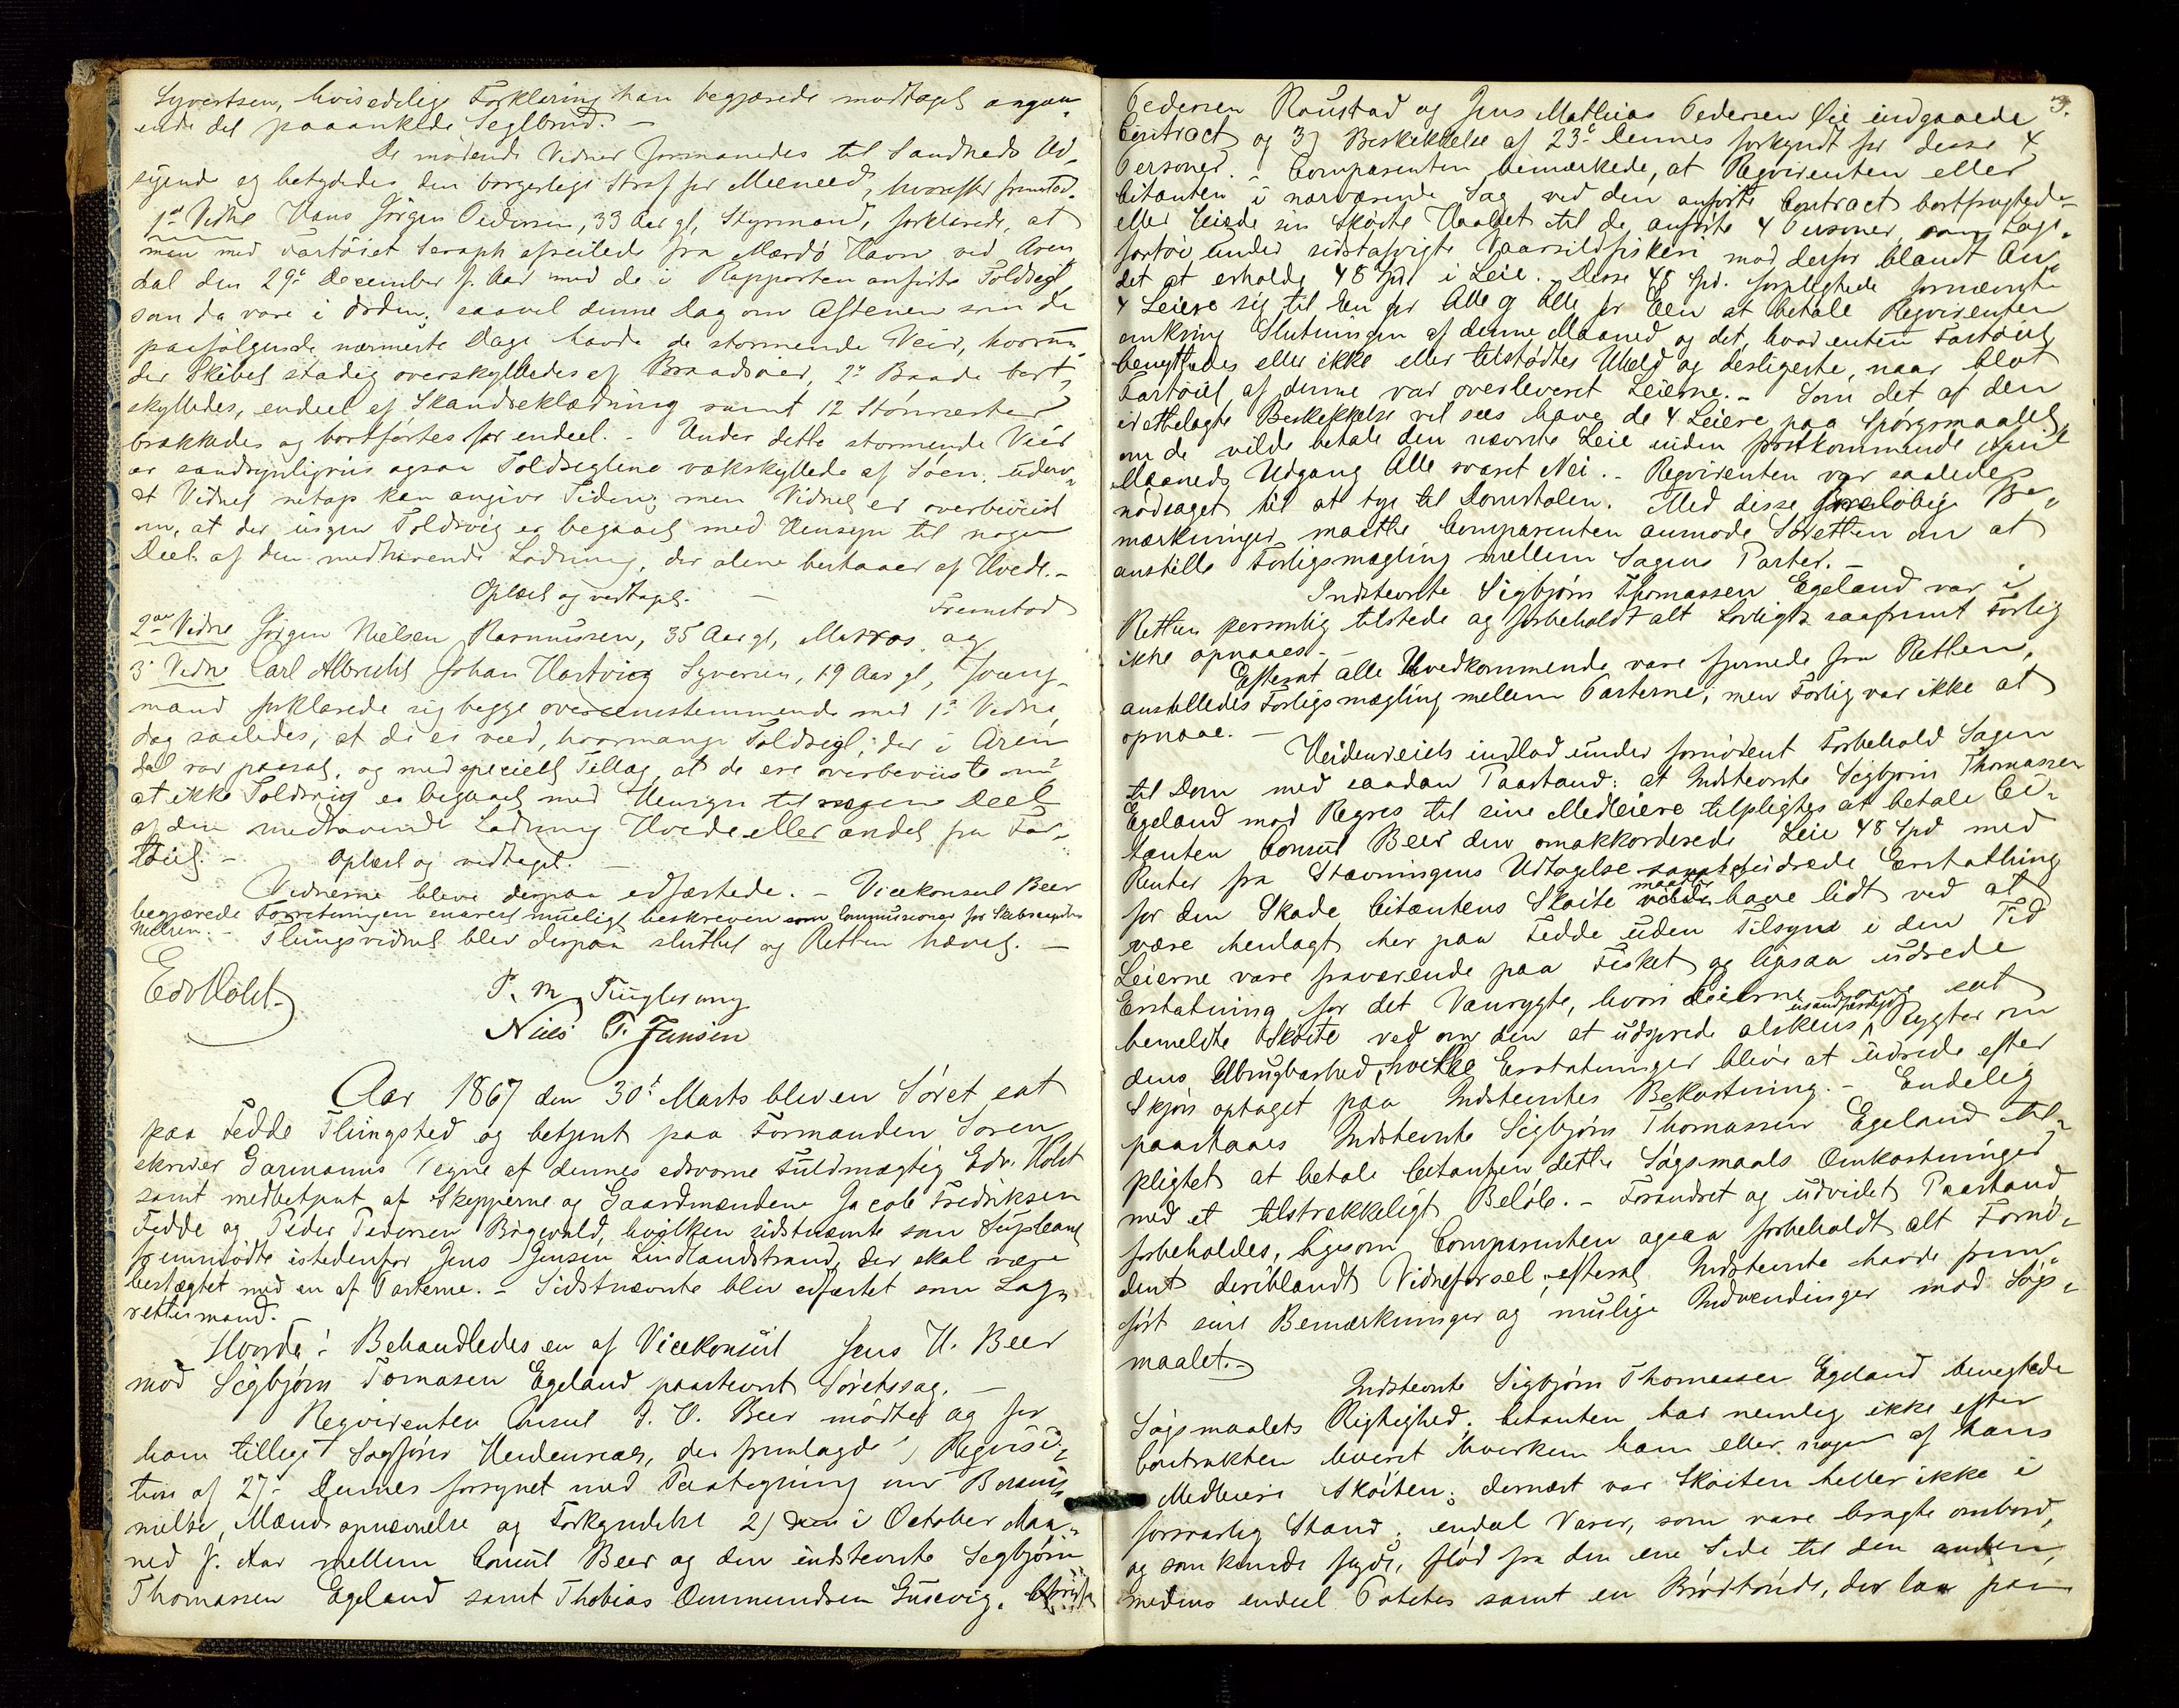 Syvertsen, hvis edelige Forklaring han begjærede modtaget angaa-
ende det paaankede Seglbrud. –
De mødende Vidner formanedes til Sandheds Ud-
sigende og betydedes den borgerlige Straf for Meeneed, hvorefter fremstod
1ste Vidne Hans Jørgen Pedersen, 33 Aar gl, Styrmand, forklarede, at
man med Fartøiet Seraph afseilede fra Mærdø Havn ved Aren
dal den 29de December f. Aar med de i Rapporten anførte Toldsegl,
som da vare i Orden; saavel denne Dag om Aftenen som de
paafølgende nærmeste Dage havde de stormende Veir, hvorun-
der Skibet stadig overskylledes af Braadsøer, 2de Baade bort-
skylledes, endeel af Skandseklædning samt 12 Stønnester
brækkedes og bortførtes for endeel. – Under dette stormende Veir
er sandsynligviis ogsaa Toldseglene vækskyllede af Søen, uden
at Vidnet netop kan angive Tiden; men Vidnet er overbeviist
om, at der ingen Toldsvig er begaaet med Hensyn til nogen
Deel af den medhavende Ladning, der alene bestaaer af Hvede. –
Oplæst og vedtaget. – Fremstod
2det Vidne Jørgen Nielsen Rasmussen, 35 Aar gl, Matros og
3die Vidne Carl Albrecht Johan Hartvig Syversen, 19 Aar gl, Jung-
mand forklarede sig begge overeensstemmende med 1ste Vidne,
dog saaledes, at de ei veed, hvormange Toldsegl, der i Aren
dal var paasat, og med specielt Tillæg, at de ere overbeviiste om
at ikke Toldsvig er begaaet med Hensyn til nogen Deel
af den medhavende Ladning Hvede eller andet fra Far-
tøiet. – Oplæst og vedtaget. –
Vidnerne bleve derpaa edfæstede. – Vicekonsul Beer
begjærede Forretningen snarest mueligt beskreven som Commissionær for Skibscapitain
Nielsen. – Thingsvidnet blev derpaa sluttet og Retten hævet. –
Edv Holst P. M. Tinglesung
Niels T. Jensen
Aar 1867 den 30te Marts blev en Søret sat
paa Fedde Thingsted og betjent paa Formanden Soren
skriver Garmanns Vegne af dennes edsvorne Fuldmægtig Edv. Holst
samt medbetjent af Skipperne og Gaardmændene Jacob Fredriksen
Fedde og Peder Pedersen Bøgwald, hvilken sidstnævnte som Supleant
fremmødte istedenfor Jens Jensen Lindlandstrand, der skal være
beslægtet med en af Parterne. – Sidstnævnte blev edfæstet som Lag-
rettesmand. –
Hvorda: Behandledes en af Vicekonsul Jens H. Beer
mod Sigbjørn Tomasen Egeland paastevnt Søretssag. –
Reqvirenten Consul J. H. Beer mødte og for
ham tillige Sagfører Heidenreich, der fremlagde 1) Reqvisi-
tion af 27de Dennes forsynet med Paategning om Beram-
melse, Mænds opnævnelse og Forkyndelse 2) den i October Maa-
ned f. Aar mellem Consul Beer og den indstevnte Segbjørn
Thomassen Egeland samt Thobias Ommundsen Gusevig,
3.
Pedersen Raustad og Jens Mathias Pedersen Øie indgaaede
Contract og 3) Beskikkelse af 23de Dennes forkyndt for disse 4
Personer. – Comparenten bemærkede, at Reqvirenten eller
Citanten i nærværende Sag ved den anførte Contract bortfragtede
eller leiede sin Skøite Haabet til de anførte 4 Personer som Logi-
fartøi under sidstafvigte Vaarsildfiskeri mod derfor blandt An-
det at erholde 48 Spd i Leie. Disse 48 Spd. forpligtede fornævnte
4 Leiere sig til Een for Alle og Alle for Een at betale Reqvirenten
omkring Slutningen af denne Maaned og det, hvad enten Fartøiet
benyttedes eller ikke eller tilstødtes Uheld og desligeste, naar blot
Fartøiet af denne var overleveret Leierne. – Som det af den
irettelagte Beskikkelse vil sees have de 4 Leiere paa Spørgsmaalet
om de vilde betale den nævnte Leie inden førstkommende April
Maaneds Udgang Alle svaret Nei. – Reqvirenten var saaledes
nødsaget til at tye til Domstolen. Med disse foreløbige Be-
mærkninger maatte Comparenten anmode Søretten om at
anstille Forligsmægling mellem Sagens Parter. –
Indstevnte Sigbjørn Thomassen Egeland var i
Retten personlig tilstede og forbeholdt alt Lovligt saafremt Forlig
ikke opnaaes. –
Efterat alle Uvedkommende vare fjernede fra Retten,
anstilledes Forligsmægling mellem Parterne; men Forlig var ikke at
opnaae. –
Heidenreich indlod under fornødent Forbehold Sagen
til Dom med saadan Paastand: at Indstevnte Sigbjørn Thomassen
Egeland mod Regres til sine Medleiere tilpligtes at betale Ci-
tanten Consul Beer den omakkorderede Leie 48 Spd med
Renter fra Stævningens Udtagelse samt udrede Erstatning
for den Skade Citantens Skøite maatte have lidt ved at
være henlagt her paa Fedde uden Tilsyn i den Tid
Leierne vare fraværende paa Fisket og ligesaa udrede
Erstatning for det Vanrygte, hvori Leierne have sat
bemeldte Skøite ved om den at udsprede alskens usandfærdige Rygter om
dens Ubrugbarhed, hvilke Erstatninger bliver at udrede efter
Skjøn optaget paa Indstevntes Bekostning. – Endelig
paastaaes Indstevnte Sigbjørn Thomassen Egeland til-
pligtet at betale Citanten dette Søgsmaals Omkostninger
med et tilstrækkeligt Beløb. – Forandret og udvidet Paastand
forbeholdes, ligesom Comparenten ogsaa forbeholdt alt Fornø-
dent deriblandt Vidneførsel, efterat Indstevnte havde frem-
ført sine Bemærkninger og mulige Indvendinger mod Søgs-
maalet. –
Indstevnte Sigbjørn Thomassen Egeland benegtede
Søgsmaalets Rigtighed; Citanten har nemlig ikke efter
Contrakten leveret hverken ham eller nogen af hans
Medleiere Skøiten; dernæst var Skøiten heller ikke i
forsvarlig Stand; endeel Varer, som vare bragte ombord,
og som kunde flyde, flød fra den ene Side til den anden,
medens endeel Potetes samt en Brødtønde, der laa paa